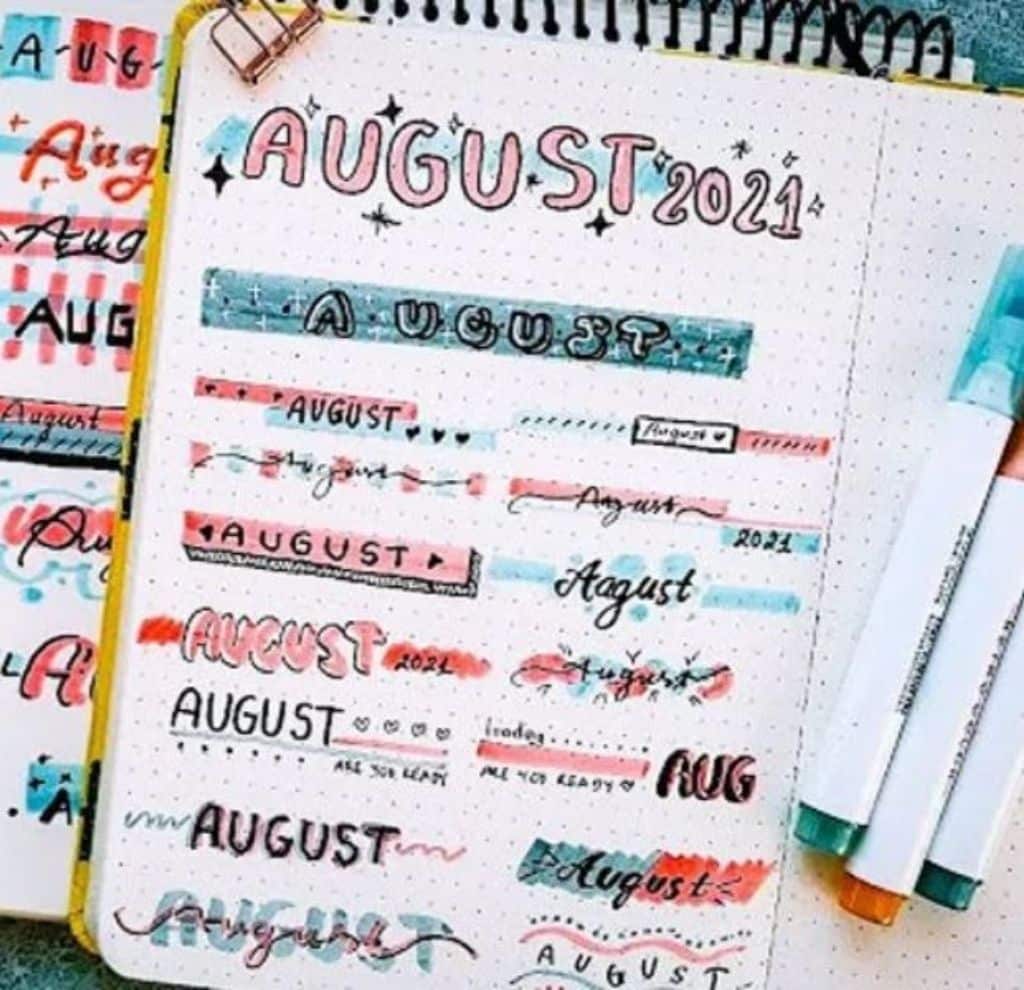 AUG
Aug
Aug
AUG
August
A
AUGUST 2021
AUGUST
AUGUST
August
August
August
2021
AUGUST
August
AUGUST 2021
August
AUGUST
ARE YOU READY
today
ARE YOU READY
AUG
AUGUST
August
AUGUST
August
AUGUST